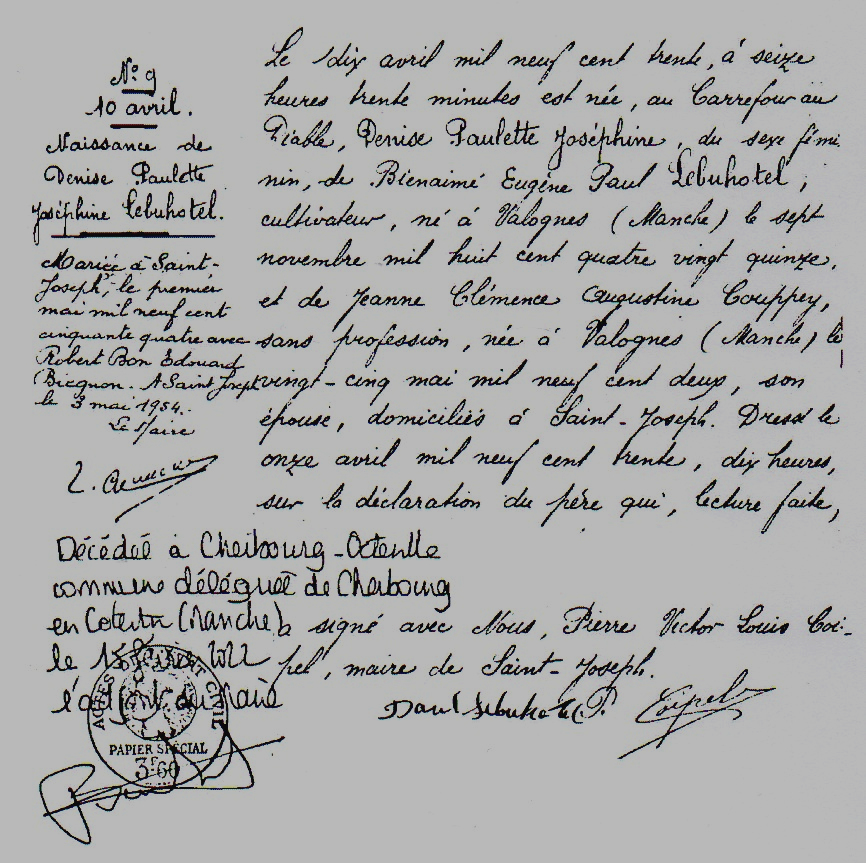 N° 9
10 avril.
Naissance de
Denise Paulette
Joséphine Lebuhotel.
Mariée à Saint-
Joseph, le premier
mai mil neuf cent
cinquante quatre avec
Robert Bon Edouard
Bicgnon. A Saint Joseph
le 3 mai 1954.
Le Maire
Le dix avril mil neuf cent trente, à seize
heures trente minutes est née, au Carrefour au
Diable, Denise Paulette Joséphine, du sexe fémi-
nin, de Bienaimé Eugène Paul Lebuhotel,
cultivateur, né à Valognes (Manche) le sept
novembre mil huit cent quatre vingt quinze,
et de Jeanne Clémence Augustine Couppey,
sans profession, née à Valognes (Manche) le
vingt-cinq mai mil neuf cent deux, son
épouse, domiciliés à Saint-Joseph. Dressé le
onze avril mil neuf cent trente, dix heures,
sur la déclaration du père qui, lecture faite,
a signé avec Nous, Pierre Victor Louis Coi-
pel, maire de Saint-Joseph.
Paul Lebuhotel P. Coipel
Décédée à Cherbourg-Octeville
commune déléguée de Cherbourg
en Cotentin (Manche)
le 15 2022
l'adjoint au maire
ACTES DE L'ETAT CIVIL
PAPIER SPÉCIAL
3F60